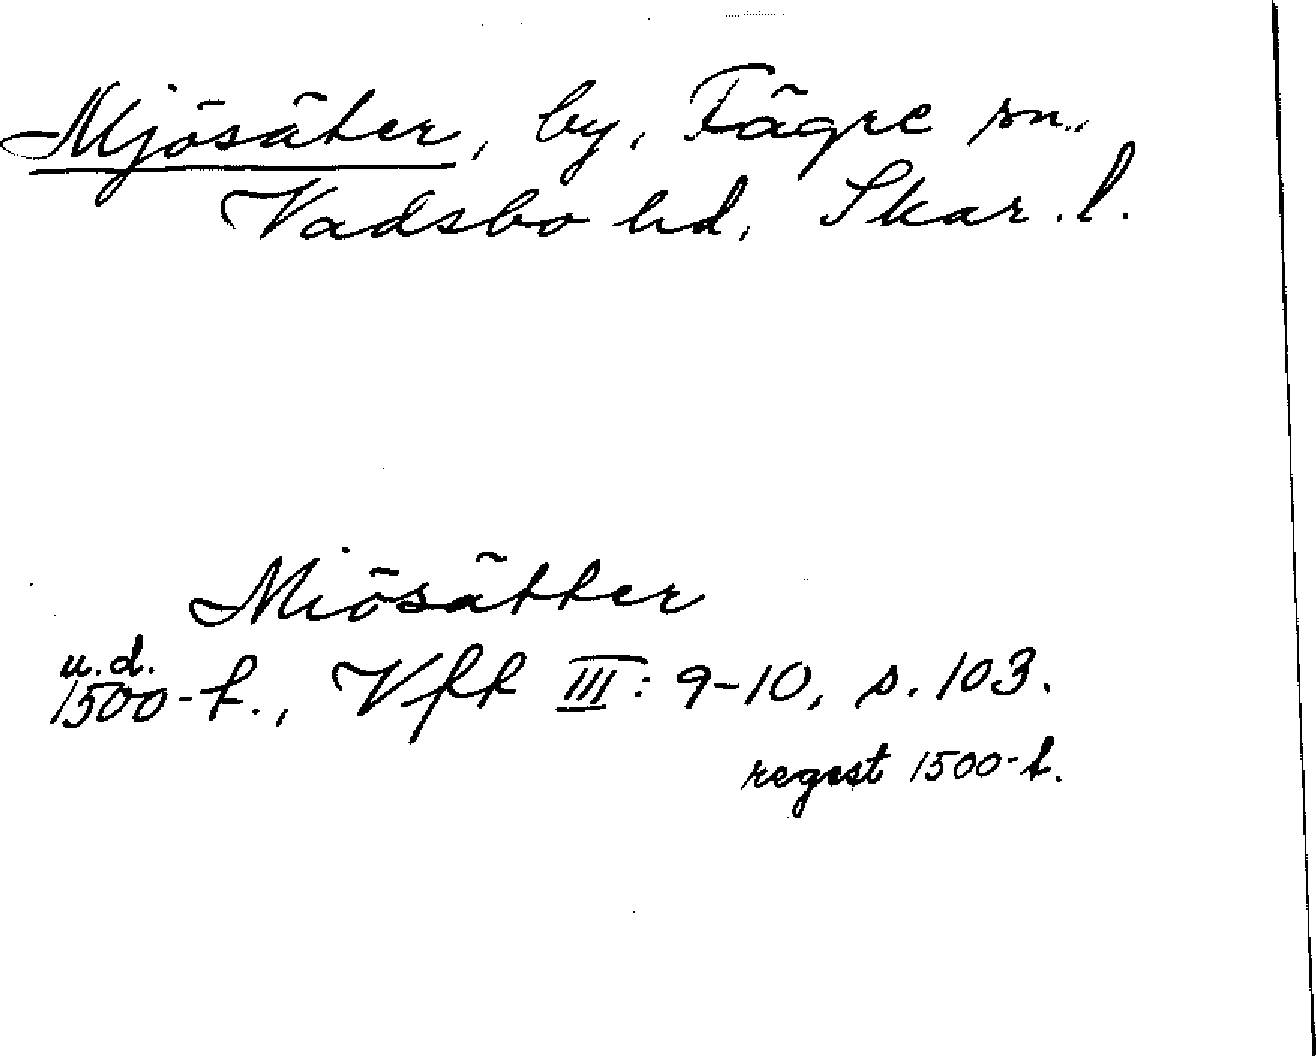 Mjösäter, by, Fägre sn.,
Vadsbo hd, Skar. l.
Miösätter
u.d.
1500-t., Vfft III: 9-10, s. 103.
regest 1500-t.